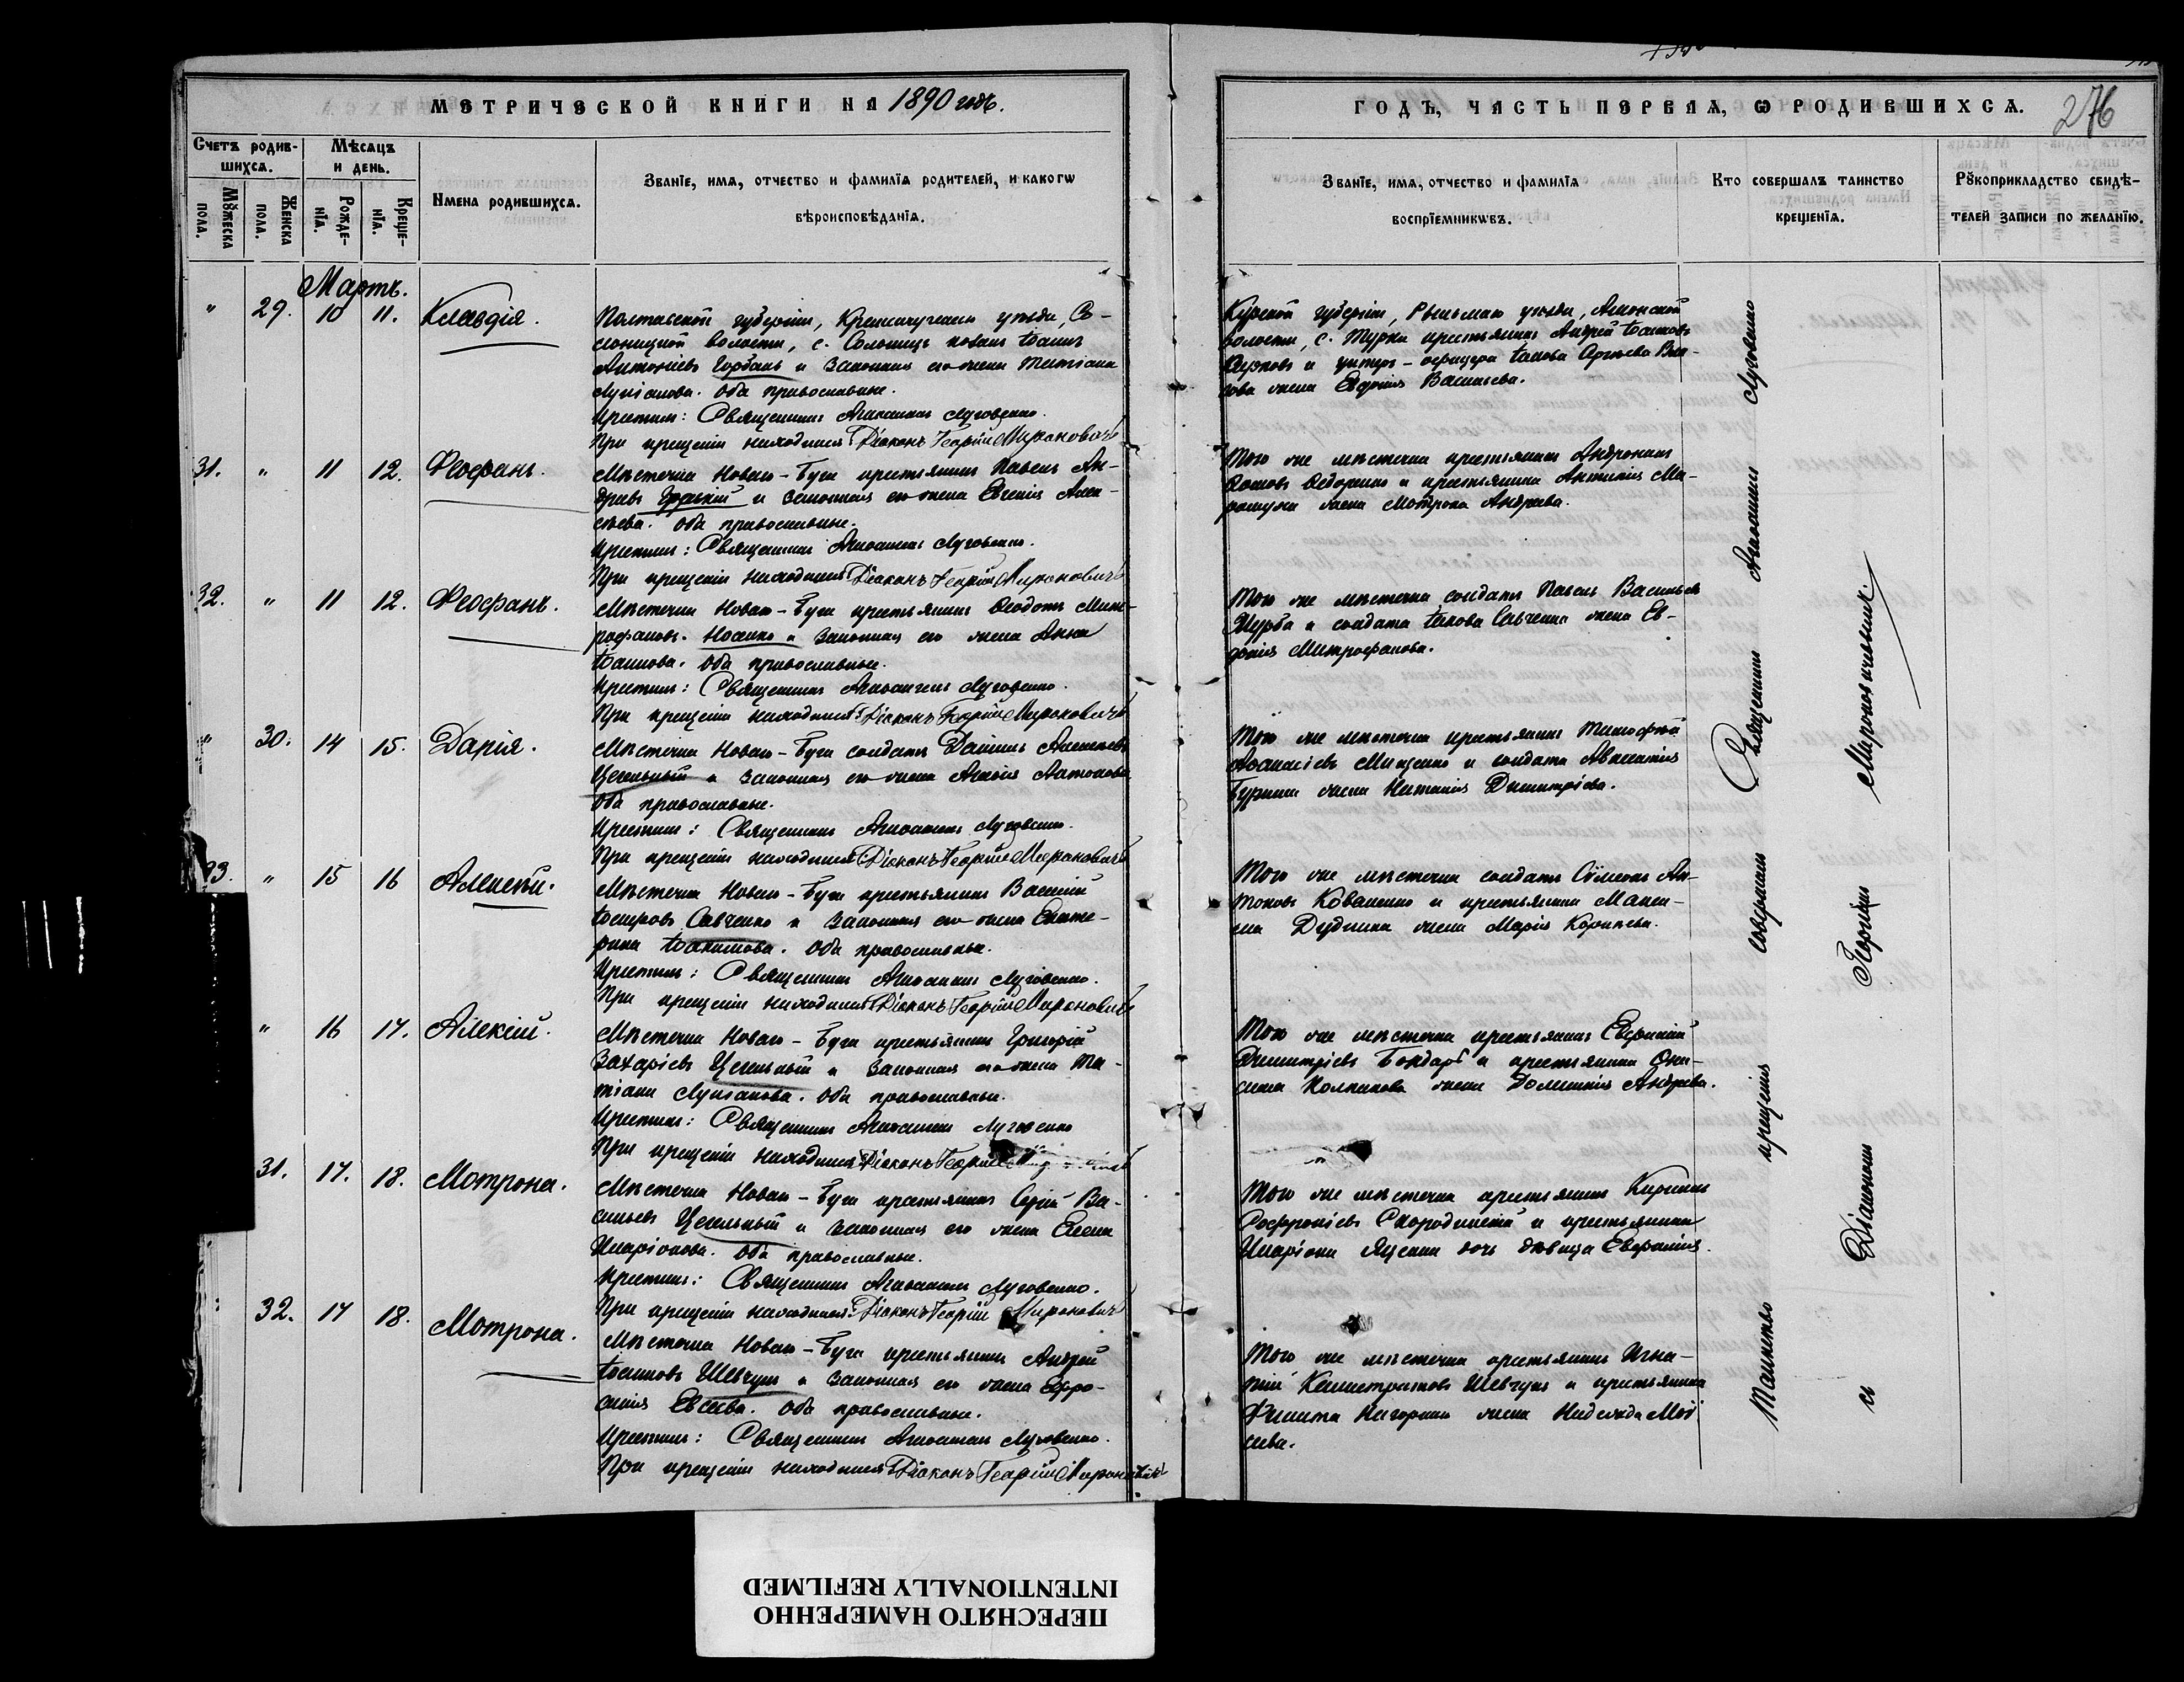 МЕТРИЧЕСКОЙ КНИГИ НА 1890 годъ.
Счетъ родив-
шихся.
Мужеска
пола.
Женска
пола.
Мѣсяцъ
и день.
Рожде-
нія.
Креще-
нія.
Имена родившихся.
Званіе, имя, отчество и фамилія родителей, и какогѡ
вѣроисповѣданія.
Мартъ.
" 29. 10 11. Клавдія.
Полтавской губерніи, Кременчугскаго уѣзда,
волости, с. Іоаннъ
Антоніевъ Горбань и законная его жена Татіана
Лукіанова. Оба православные.
Крестилъ: Священникъ Луговенко.
При крещеніи находился Діаконъ Георгій Мироновичъ
31. " 11 12. Феофанъ.
Мѣстечка Новаго-Буга крестьянинъ Павелъ Ан-
дреевъ и законная его жена Евгенія Алек-
сѣева. Оба православные.
Крестилъ: Священникъ Луговенко.
При крещеніи находился Діаконъ Георгій Мироновичъ
32. " 11 12. Феофанъ.
Мѣстечка Новаго-Буга крестьянинъ Феодотъ Мит-
рофановъ Носенко и законная его жена Анна
Іоаннова. Оба православные.
Крестилъ: Священникъ Луговенко.
При крещеніи находился Діаконъ Георгій Мироновичъ
" 30. 14 15. Дарія.
Мѣстечка Новаго-Буга солдатъ Даніилъ Алексѣевъ
Цегельный и законная его жена Антонова
Оба православные.
Крестилъ: Священникъ Луговенко.
При крещеніи находился Діаконъ Георгій Мироновичъ
33. " 15 16 Алексѣй.
Мѣстечка Новаго-Буга крестьянинъ Василій
Іосифовъ Савченко и законная его жена Екате-
рина Іоакимова. Оба православные.
Крестилъ: Священникъ Луговенко.
При крещеніи находился Діаконъ Георгій Мироновичъ
" 16 17. Алексій.
Мѣстечка Новаго-Буга крестьянинъ Григорій
Захаріевъ Цегельный и законная его жена Та-
тіана Лукіанова. Оба православные.
Крестилъ: Священникъ Луговенко
При крещеніи находился Діаконъ Георгій
31. 17. 18. Мотрона.
Мѣстечка Новаго-Буга крестьянинъ Сергій Ва-
сильевъ Цегельный и законная его жена Елена
Иларіонова. Оба православные.
Крестилъ: Священникъ Луговенко.
При крещеніи находился Діаконъ Георгій Мироновичъ
32. 17 18. Мотрона.
Мѣстечка Новаго-Буга крестьянинъ Андрей
Іоанновъ Шевчукъ и законная его жена Ефро-
синія Евсеева. Оба православные.
Крестилъ: Священникъ Луговенко.
При крещеніи находился Діаконъ Георгій Мироновичъ
ГОДЪ, ЧАСТЬ ПЕРВАЯ, Ѡ РОДИВШИХСЯ.
276
Званіе, имя, отчество и фамилія
воспріемникѡвъ.
Кто совершалъ таинство
крещенія.
Рукоприкладство свидѣ-
телей записи по желанію.
Курской губерніи, Рыльскаго уѣзда,
волости, с. Турки крестьянинъ Андрей Іоанновъ
и унтеръ-офицера Іакова
жена Евфимія Васильева.
Того же мѣстечка крестьянинъ Андроникъ
Федоренко и крестьянина Антонія
жена Мотрона Андреева.
Того же мѣстечка солдатъ Павелъ Васильевъ
и солдата Іакова Савченка жена Ев-
фимія Митрофанова.
Того же мѣстечка крестьянинъ Тимофей
Афанасіевъ Мищенко и солдата
жена Наталія Димитріева.
Того же мѣстечка солдатъ Сѵмеонъ Ан-
тоновъ Коваленко и крестьянина Макси-
ма Дудника жена Марія Корнѣева.
Того же мѣстечка крестьянинъ
Димитріевъ Бондарь и крестьянина Они-
сима Колпакова жена Домникія Андреева.
Того же мѣстечка крестьянинъ Кириллъ
Софроніевъ Скородинскій и крестьянина
Иларіона Яценка дочь дѣвица Евфимія.
Того же мѣстечка крестьянинъ Игна-
тій Калистратовъ Шевчукъ и крестьянина
Филиппа Нагорнаго жена Надежда Мои
сеева.
Таинство крещенія совершалъ Священникъ Луговенко
съ Діакономъ Георгіемъ Мироновичемъ
ПЕРЕСНЯТО НАМЕРЕННО
INTENTIONALLY REFILMED